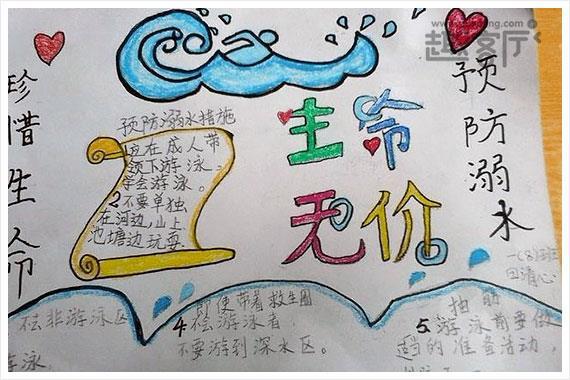 趣客厅
珍惜生命
预防溺水
生命
无价
预防溺水措施
1、应在成人带
领下游泳、
学会游泳。
2、不要单独
在河边,山上
池塘边玩耍
一(8)班
去非游泳区
游泳
即使带着救生圈
4、不会游泳者,
不要游到深水区。
抽筋
5、游泳前要做
适当的准备活动,